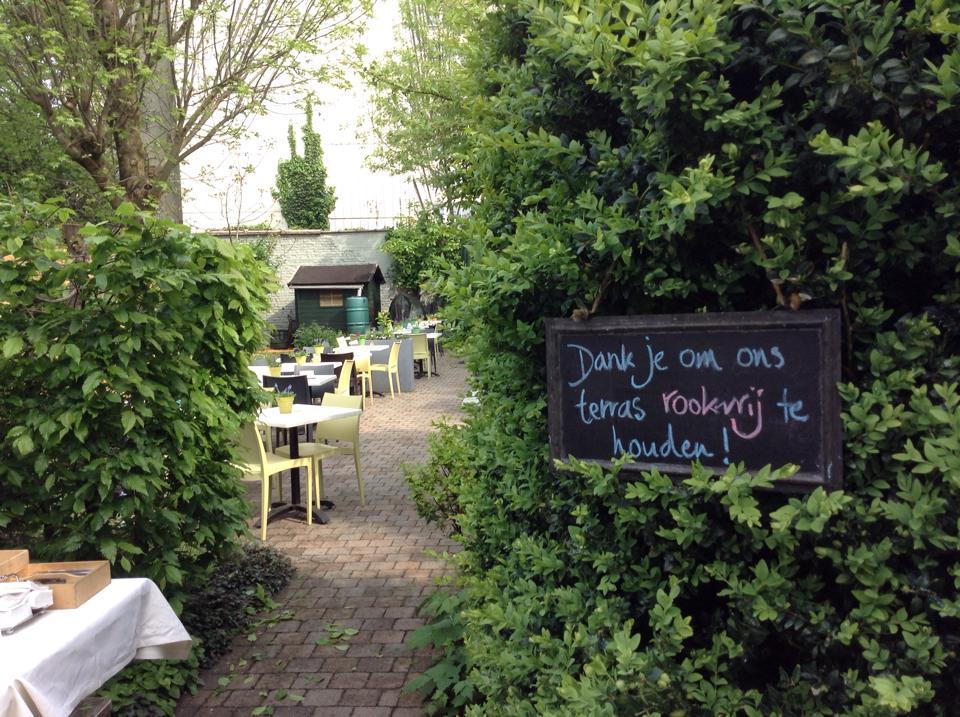 Dank je om ons
terras rookvrij te
houden!